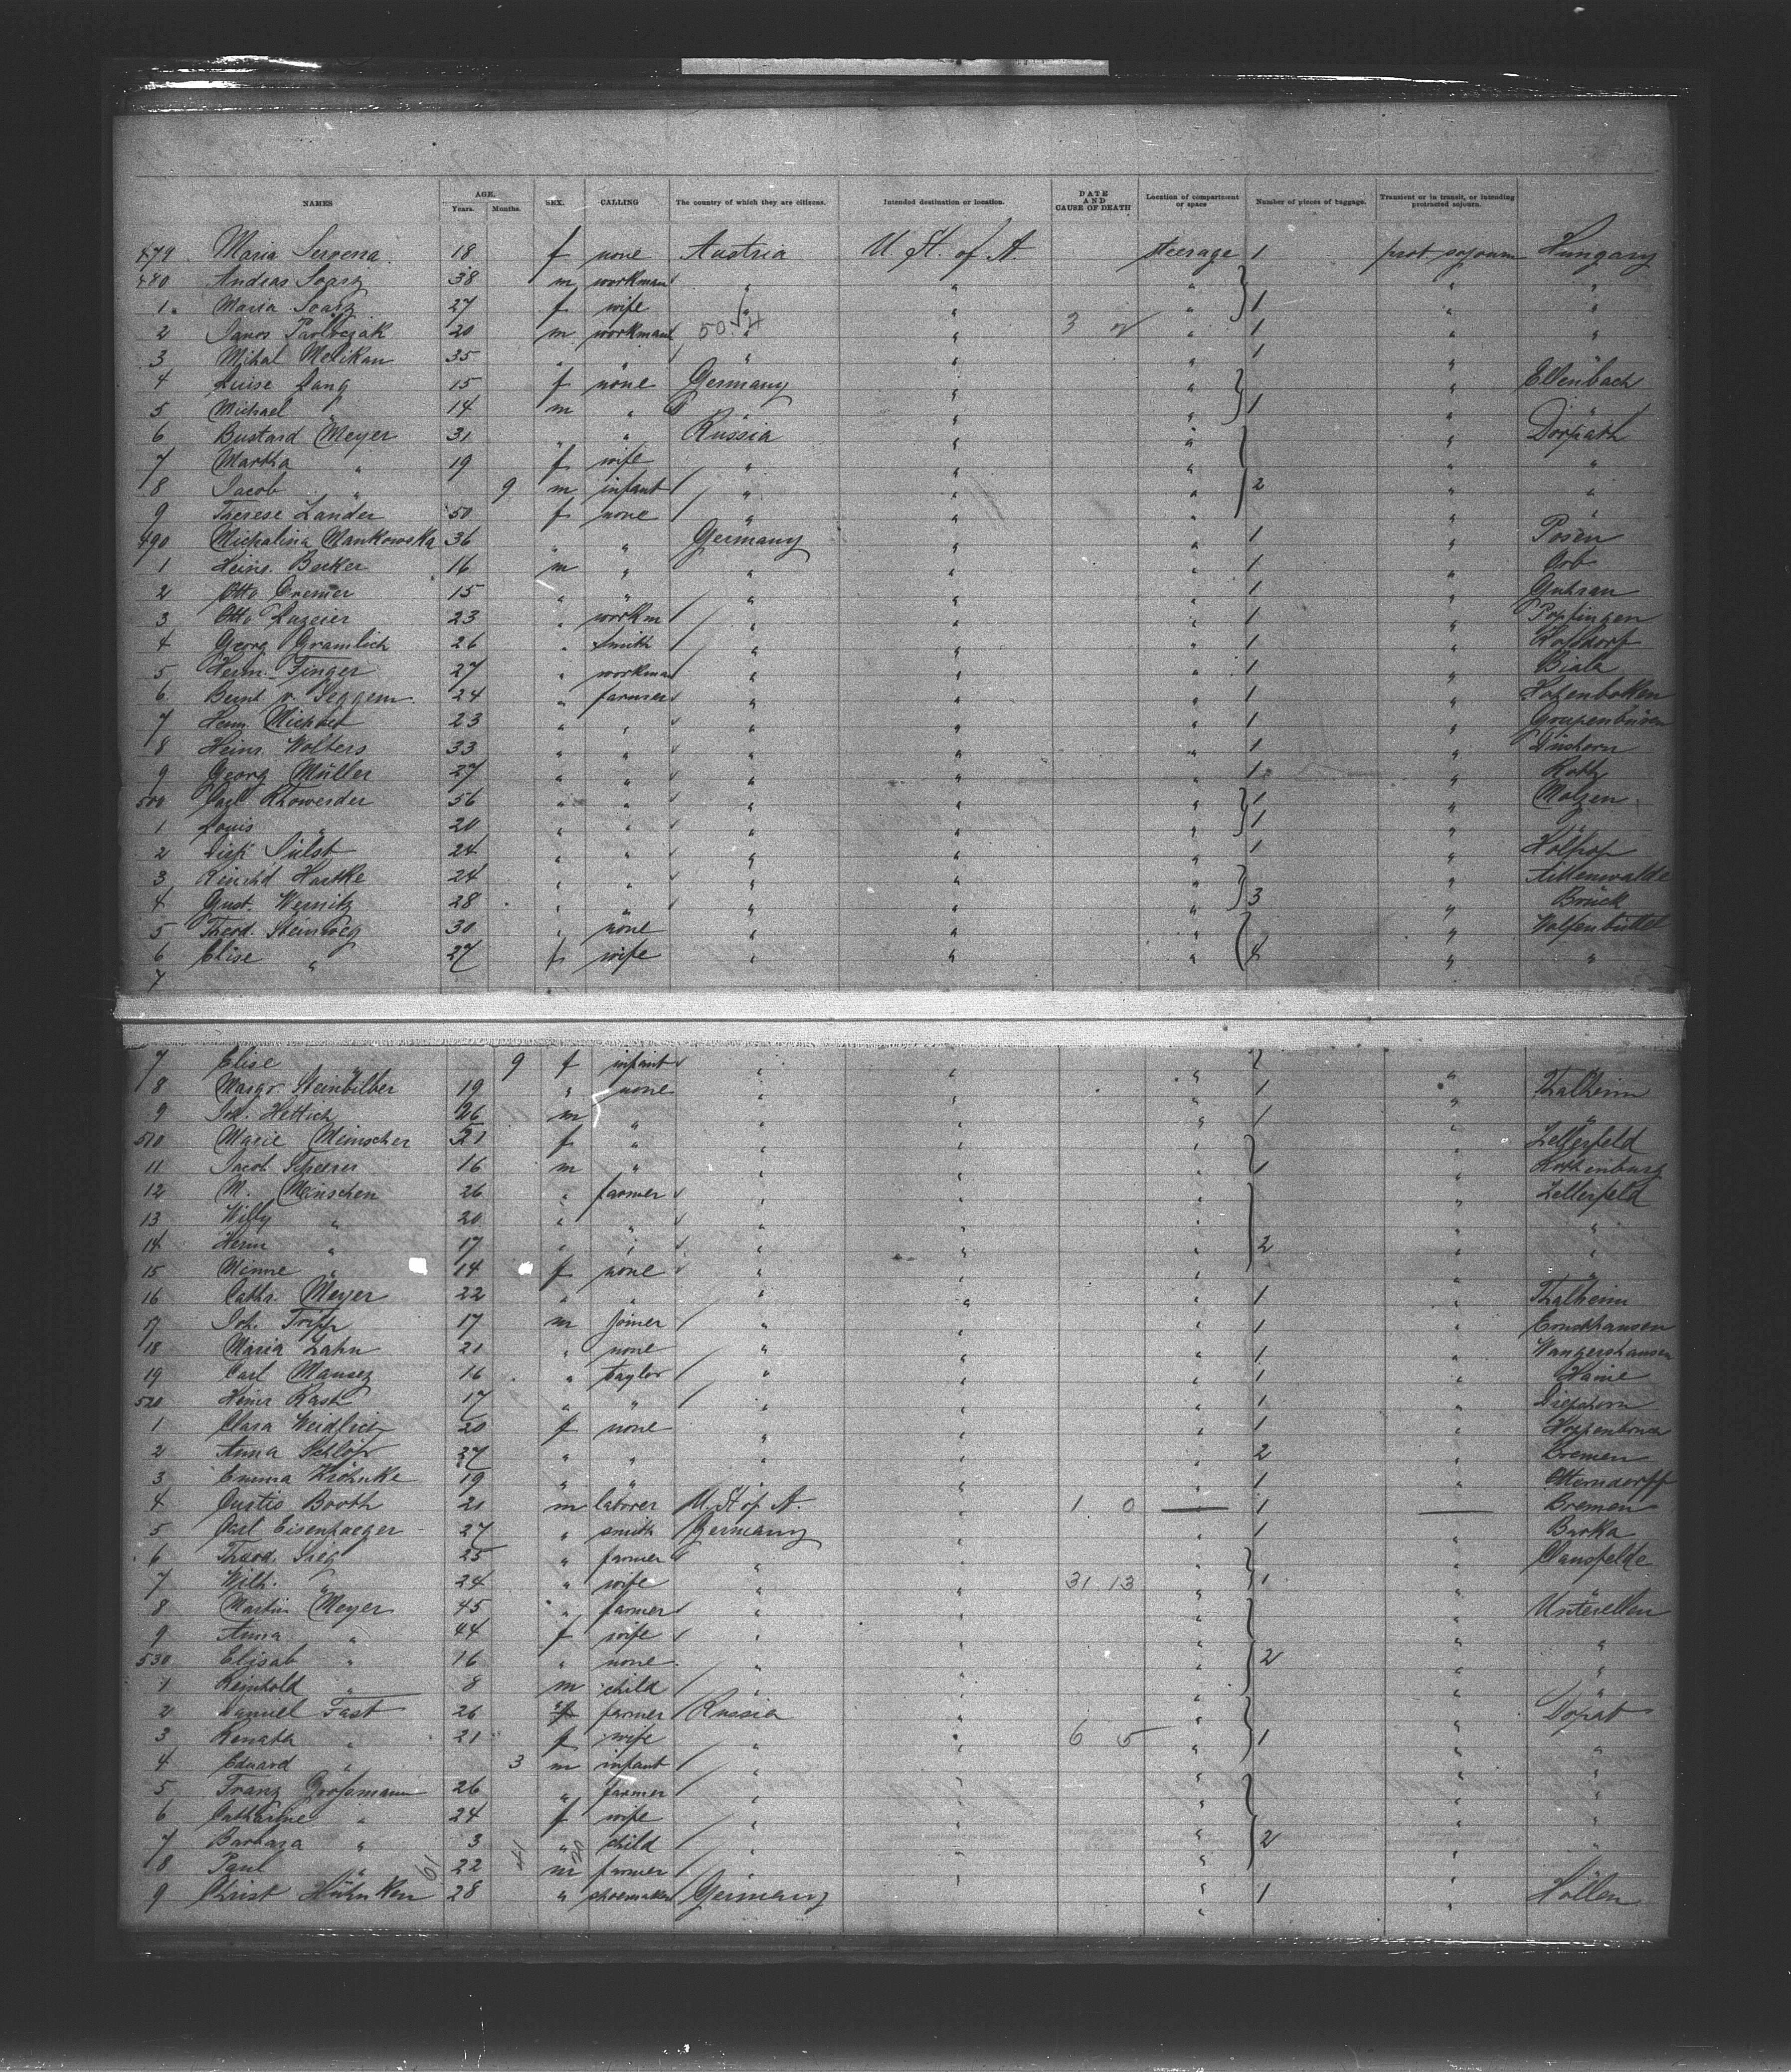 NAMES AGE. Years. Months. SEX. CALLING The country of which they are citizens. Intended destination or location. DATE AND CAUSE OF DEATH Location of compartment or space Number of pieces of baggage. Transient or in transit, or intending protracted sojourn.
479 Maria 18 f none Austria U St. of A. steerage 1 prot. sojourn Hungary
480 Andras Soarz 38 m workman " " " " "
1 Maria Soarz 27 f wife " " " 1 " "
2 Janos 20 m workman " " 3 " 1 " "
3 Mihal Melikan 35 " " " " " 1 " "
4 Luise Lang 15 f none Germany " " " Ellenbach
5 Michael " 14 m " " " " 1 " "
6 Bustard Meyer 31 " " Russia " " " Dorpath
7 Martha " 19 f wife " " " " "
8 Jacob " 9 m infant " " " 2 " "
9 Therese Lander 50 f none " " " " "
490 Michalina Mankowska 36 " " Germany " " 1 " Posen
1 Heinr. Becker 16 m " " " " 1 " Orb
2 Otto Cremer 15 " " " " " 1 " Guhran
3 Otto 23 " workm " " " 1 " Popfingen
4 Georg Gramlich 26 " smith " " " 1 " Rossdorf
5 Herm. Finger 27 " workman " " " 1 " Biala
6 v. Seggern 24 " farmer " " " 1 "
7 Herm. Michael 23 " " " " " 1 " Grupenbüren
8 Heinr. Wolters 33 " " " " " 1 " Düshorn
9 Georg Müller 27 " " " " " 1 " Roth
500 Carl 56 " " " " " 1 " Molzen
1 Louis " 20 " " " " " 1 " "
2 Sülst 24 " " " " " 1 "
3 Hartke 24 " " " " " "
4 Gust. Wernitz 28 " " " " " 3 " Brück
5 Theod. Steinweg 30 " none " " " " Wolfenbüttel
6 Elise " 27 f wife " " " 4 " "
7
7 Elise " 9 f infant " " " "
8 Margr. Steinhilber 19 " none " " " 1 " Thalheim
9 Joh. Hettich 26 m " " " " 1 " "
510 Marie Meinscher 21 f " " " " " Zellerfeld
11 Jacob 16 m " " " " 1 " Rothenburg
12 M. Meinschen 26 " farmer " " " " Zellerfeld
13 Willy " 20 " " " " " " "
14 Herm " 17 " " " " " 2 " "
15 Minne " 14 f none " " " " "
16 Cathr. Meyer 22 " " " " " 1 " Thalheim
17 Joh. Tripp 17 m joiner " " " 1 "
18 Maria Zahn 21 " none " " " 1 " Wangershausen
19 Carl Mausez 16 " taylor " " " 1 " Haine
520 Heinr Rast 17 " " " " " 1 "
1 Clara Weidlich 20 f none " " " 1 "
2 Anna 37 " " " " " 2 " Bremen
3 Emma Kröhnke 19 " " " " " 1 " Otterndorff
4 Custis Booth 21 m laborer U. St of A. " 1 0 — 1 — Bremen
5 Carl Eisenfaeger 27 " smith Germany " " 1 " Barka
6 Theod. Sieg 25 " farmer " " " "
7 Wilh. " 24 " wife " " 31 13 " 1 " "
8 Martin Meyer 45 " farmer " " " " Unterellen
9 Anna " 44 f wife " " " " "
530 Elisab " 16 " none " " " 2 " "
1 Reinhold " 8 m child " " " " "
2 Samuel Fast 26 farmer Russia " " " Dorpat
3 Renata " 21 f wife " " 6 5 " 1 " "
4 Eduard " 3 m infant " " " " "
5 Franz Grossmann 26 " farmer " " " " "
6 Catharine " 24 f wife " " " " "
7 Barbara " 3 " child " " " 2 " "
8 Paul " 22 m farmer " " " " "
9 Christ Hühnken 28 " shoemaker Germany " " 1 " Höllen